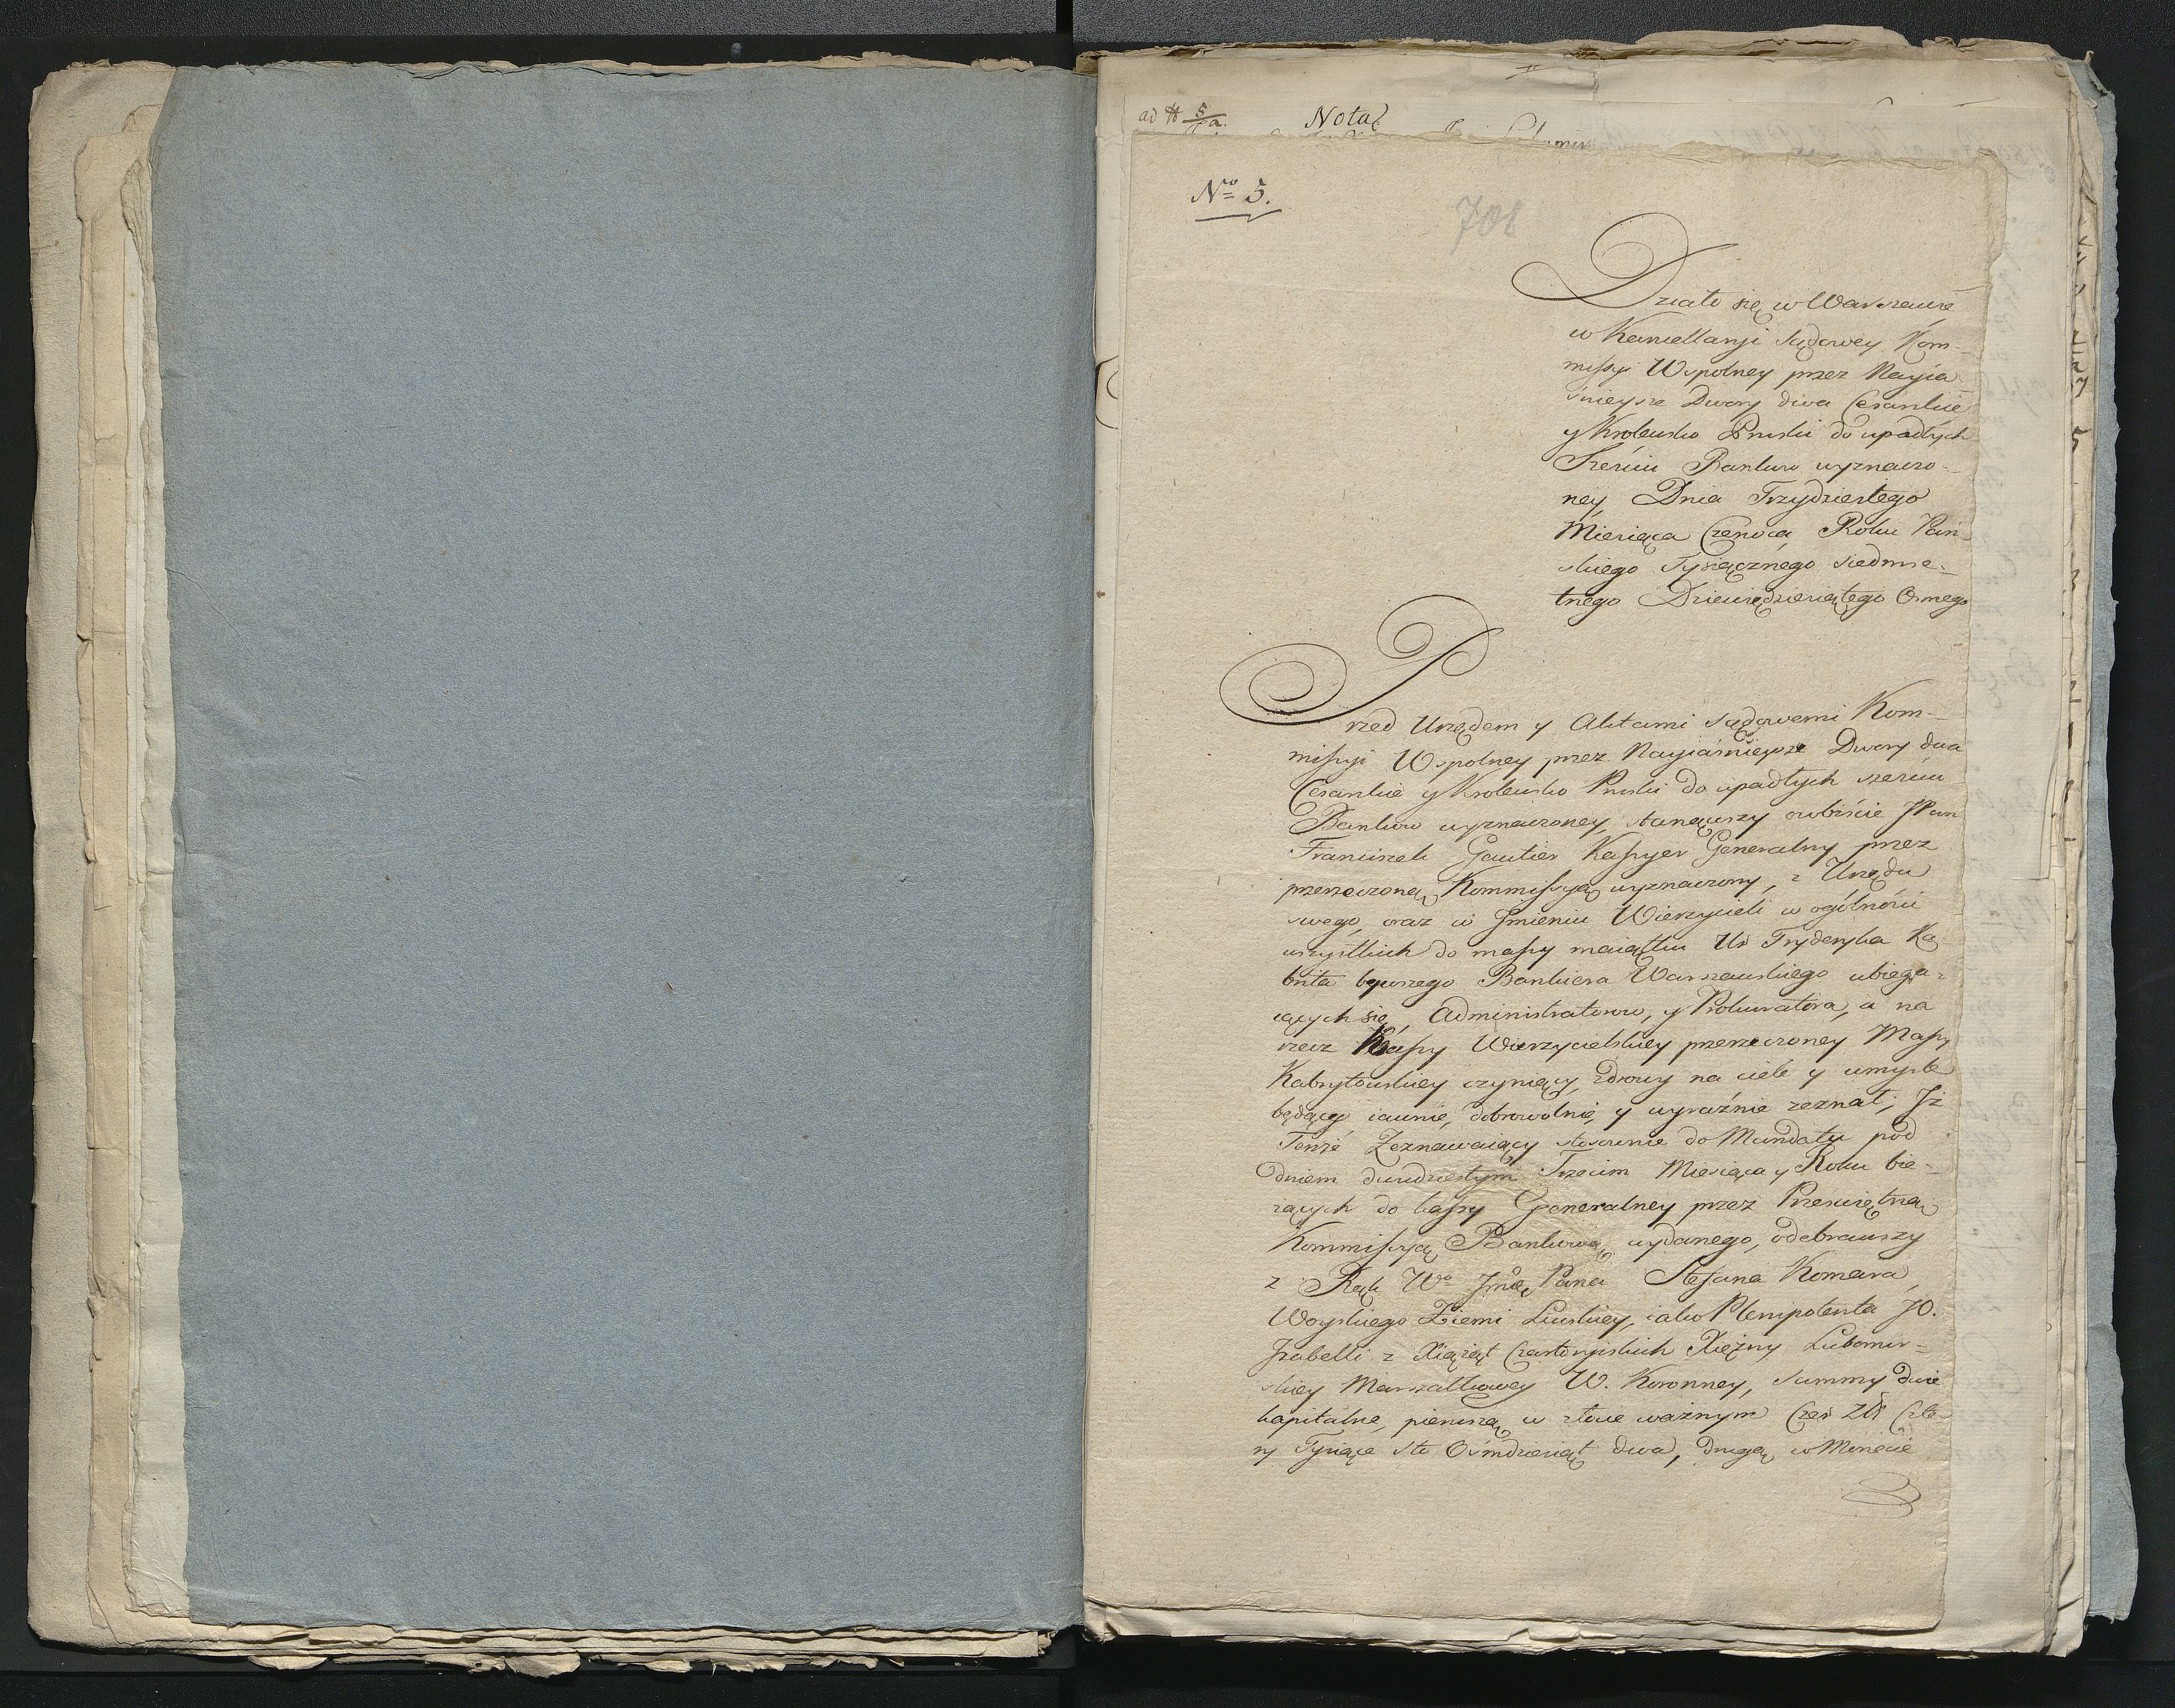 ad # 5/a.
Nota
Nro 5.
708
Działo się w Warszawie
w Kancellaryi Sądowey Kom-
missyi Wspolney przez Nayia-
śnieysze Dwory dwa Cesarskie
y Krolewsko Pruski do upadłych
Sześciu Bankow wyznaczo-
ney Dnia Trzydziestego
Miesiąca Czerwca Roku Pań-
skiego Tysiącznego siedmse-
tnego Dziewiędziesiątego Osmego
Przed Urzędem y Aktami Sądowemi Kom-
missyi Wspolney przez Nayiaśnieysze Dwory dwa
Cesarskie y Krolewsko Pruski do upadłych sześciu
Bankow wyznaczoney, stanąwszy osobiście JPan
Franciszek Gautier Kassyer Generalny przez
przerzeczoną Kommissyą wyznaczony, z Urzędu
swego, oraz w Jmieniu Wierzycieli w ogólności
wszystkich do massy maiątku Ur Fryderyka Ka-
bryta bywszego Bankiera Warszawskiego ubiega-
iących się, Administratorow, y Prokuratora, a na
rzecz Kassy Wierzycielskiey przerzeczoney Massy
Kabrytowskiey czyniący, zdrowy na ciele y umyśle
będący, iawnie, dobrowolnie, y wyraźnie zeznał; Jż
Tenże Zeznawaiący stosownie do Mandatu pod
dniem dwudziestym Trzecim Miesiąca y Roku bie-
żących do kassy Generalney przez Prześwietną
Kommissyą Bankową wydanego, odebrawszy
z Rąk Wo Jmć Pana Stefana Komara,
Woyskiego Ziemi Liwskiey, iako Plenipotenta JO.
Jzabelli z Xiążąt Czartoryiskich Xiężny Lubomir-
skiey Marszałkowey W. Koronney, summy dwie
kapitalne, pierwszą w złocie ważnym Czer Złł Czte-
ry Tysiące sto Ośmdziesiąt dwa, drugą w Monecie